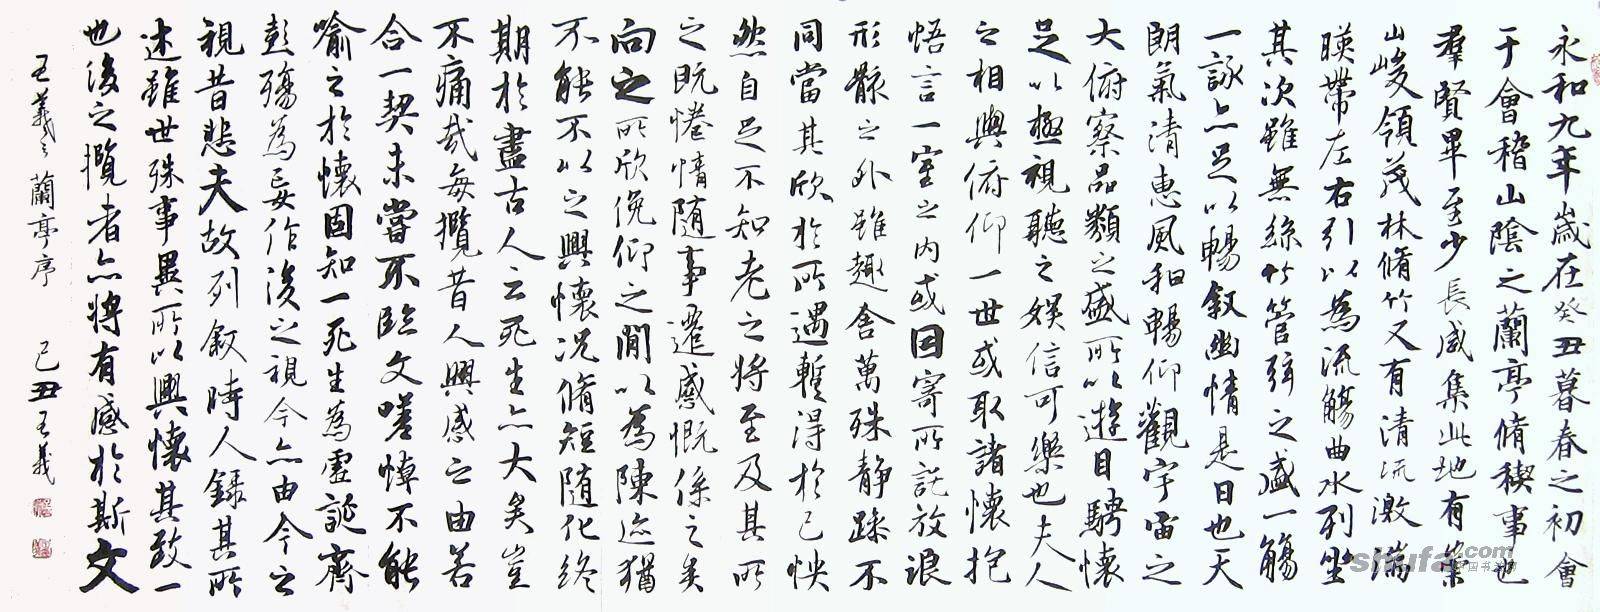 永和九年歲在癸丑暮春之初會
于會稽山陰之蘭亭脩稧事也
羣賢畢至少長咸集此地有崇
山峻領茂林脩竹又有清流激湍
暎帶左右引以為流觴曲水列坐
其次雖無絲竹管弦之盛一觴
一詠亦足以暢叙幽情是日也天
朗氣清惠風和暢仰觀宇宙之
大俯察品類之盛所以遊目騁懷
足以極視聽之娛信可樂也夫人
之相與俯仰一世或取諸懷抱
悟言一室之内或因寄所託放浪
形骸之外雖趣舍萬殊静躁不
同當其欣於所遇暫得於己怏
然自足不知老之將至及其所
之既惓情隨事遷感慨係之矣
向之所欣俛仰之閒以為陳迹猶
不能不以之興懷況脩短隨化終
期於盡古人云死生亦大矣豈
不痛哉每攬昔人興感之由若
合一契未嘗不臨文嗟悼不能
喻之於懷固知一死生為虛誕齊
彭殤為妄作後之視今亦由今之
視昔悲夫故列叙時人錄其所
述雖世殊事異所以興懷其致一
也後之攬者亦將有感於斯文
王羲之蘭亭序 己丑王義
shufa.com
中国书法网